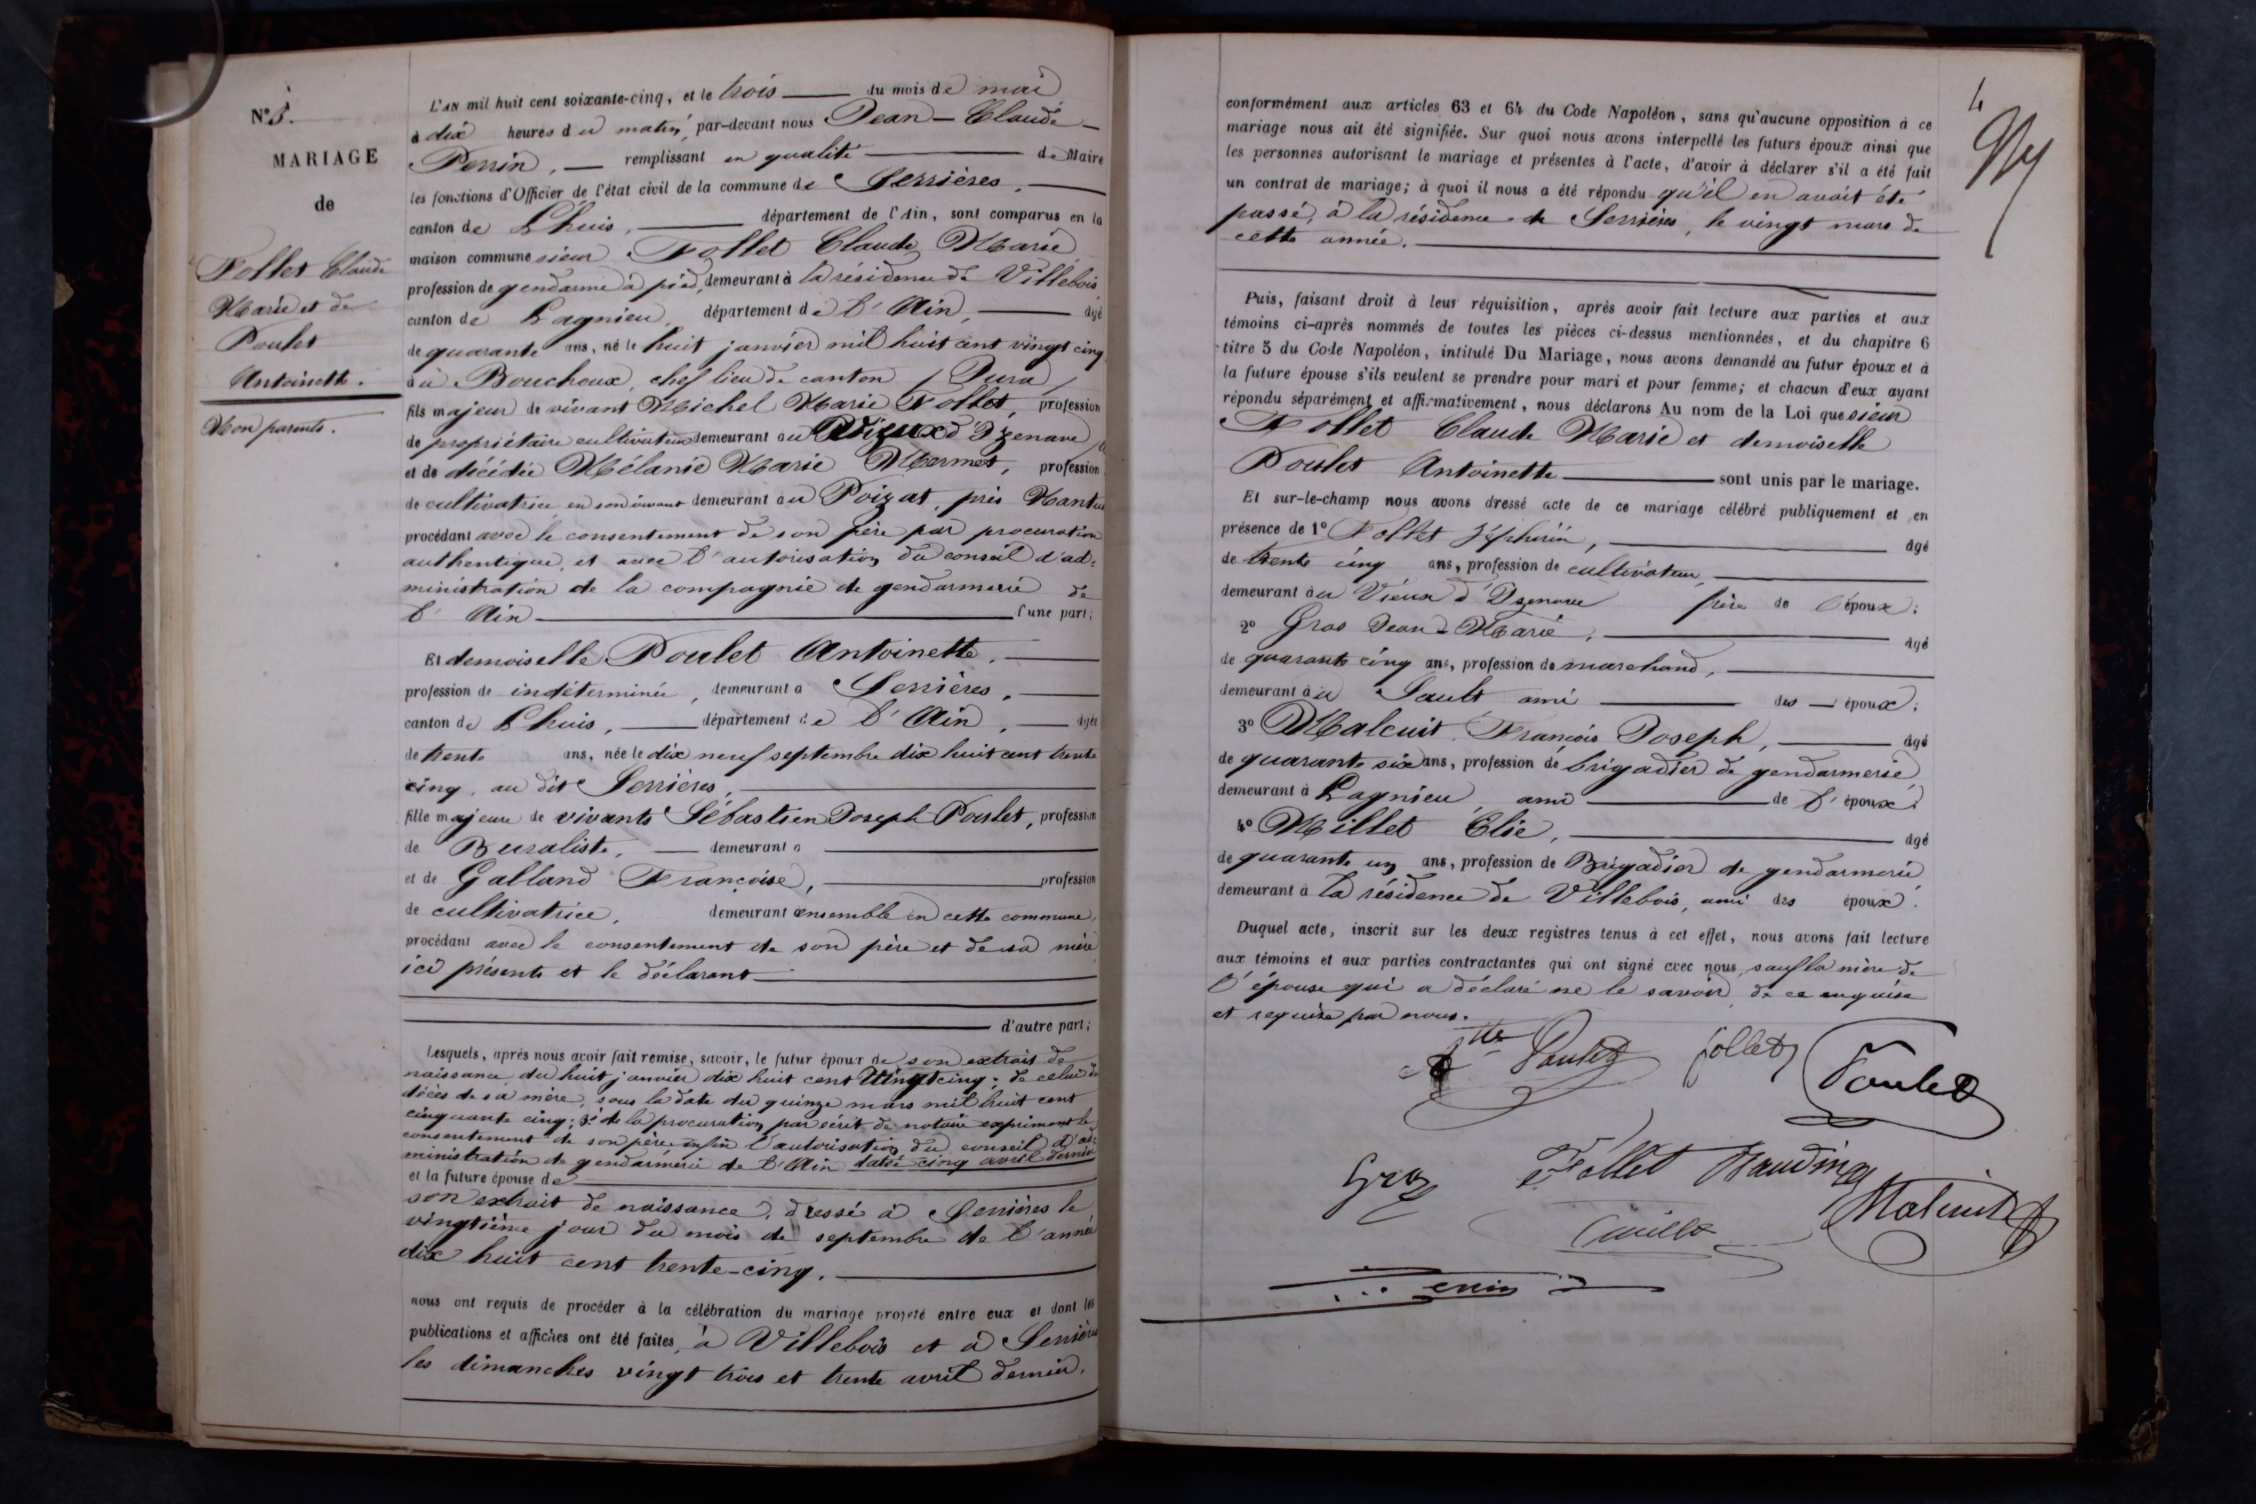 N° 5.
MARIAGE
de
Follet Claude
Marie et de
Poulet
Antoinette.
Non parents.
L'AN mil huit cent soixante-cinq, et le trois du mois de mai
à dix heures du matin, par-devant nous Jean-Claude
Perrin, remplissant en qualité de Maire
les fonctions d'Officier de l'état civil de la commune de Serrières,
canton de Lhuis, département de l'Ain, sont comparus en la
maison commune sieur Follet Claude Marie
profession de gendarme à pied, demeurant à la résidence de Villebois,
canton de Lagnieu, département de l'Ain, âgé
de quarante ans, né le huit janvier mil huit cent vingt cinq
à ù Bouchoux, chef lieu de canton (Jura)
fils majeur de vivant Michel Marie Follet, profession
de propriétaire cultivateur demeurant au Vieux d'Izenave
et de décédée Mélanie Marie Mermet, profession
de cultivatrice en son vivant demeurant au Poizat, près Nantua
procédant avec le consentement de son père par procuration
authentique, et avec l'autorisation du conseil d'ad-
ministration de la compagnie de gendarmerie de
l'Ain d'une part;
Et demoiselle Poulet Antoinette,
profession de indéterminée, demeurant à Serrières,
canton de Lhuis, département de l'Ain, âgée
de trente ans, née le dix neuf septembre dix huit cent trente
cinq, au dit Serrières,
fille majeure de vivants Sébastien Joseph Poulet, profession
de Buraliste, demeurant à
et de Galland Françoise, profession
de cultivatrice, demeurant ensemble en cette commune,
procédant avec le consentement de son père et de sa mère
ici présents et le déclarant
d'autre part;
Lesquels, après nous avoir fait remise, savoir, le futur époux de son extrait de
naissance du huit janvier dix huit cent vingt cinq; de celui du
décès de sa mère, sous la date du quinze mars mil huit cent
cinquante cinq; 3° de la procuration par écrit de notaire exprimant le
consentement de son père enfin l'autorisation du conseil d'ad-
ministration de gendarmerie de l'Ain datée cinq avril dernier
et la future épouse de
son extrait de naissance, dressé à Serrières le
vingtième jour du mois de septembre de l'année
dix huit cent trente-cinq.
nous ont requis de procéder à la célébration du mariage projeté entre eux et dont les
publications et affiches ont été faites, à Villebois et à Serrières
les dimanches vingt trois et trente avril dernier.
4
conformément aux articles 63 et 64 du Code Napoléon, sans qu'aucune opposition à ce
mariage nous ait été signifiée. Sur quoi nous avons interpellé les futurs époux ainsi que
les personnes autorisant le mariage et présentes à l'acte, d'avoir à déclarer s'il a été fait
un contrat de mariage; à quoi il nous a été répondu qu'il en avait été
passé, à la résidence de Serrières, le vingt mars de
cette année.
Puis, faisant droit à leur réquisition, après avoir fait lecture aux parties et aux
témoins ci-après nommés de toutes les pièces ci-dessus mentionnées, et du chapitre 6
titre 5 du Code Napoléon, intitulé Du Mariage, nous avons demandé au futur époux et à
la future épouse s'ils veulent se prendre pour mari et pour femme; et chacun d'eux ayant
répondu séparément et affirmativement, nous déclarons Au nom de la Loi que sieur
Follet Claude Marie et demoiselle
Poulet Antoinette sont unis par le mariage.
Et sur-le-champ nous avons dressé acte de ce mariage célébré publiquement et en
présence de 1° Follet Zéphirin, âgé
de trente cinq ans, profession de cultivateur,
demeurant au Vieux d'Izenave frère de l'époux;
2° Gros Jean-Marie, âgé
de quarante cinq ans, profession de marchand,
demeurant à u Sault, ami des époux;
3° Malcuit François Joseph, âgé
de quarante six ans, profession de brigadier de gendarmerie
demeurant à Lagnieu, ami de l'époux;
4° Millet Elie, âgé
de quarante un ans, profession de Brigadier de gendarmerie
demeurant à la résidence de Villebois, ami des époux.
Duquel acte, inscrit sur les deux registres tenus à cet effet, nous avons fait lecture
aux témoins et aux parties contractantes qui ont signé avec nous, sauf la mère de
l'épouse qui a déclaré ne le savoir, de ce enquise
et requise par nous.
Poulet follet Poulet
Gros Follet
Malcuit